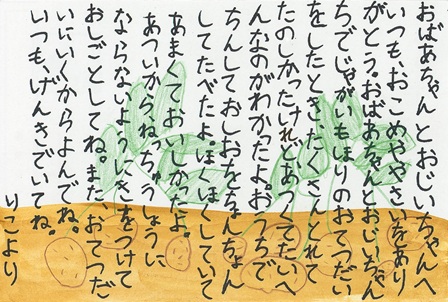 おばあちゃんとおじいちゃんへ
いつも、おこめややさいをあり
がとう。おばあちゃんとおじいちゃん
ちでじゃがいもほりのおてつだい
をしたとき、たくさんとれて
たのしかったけれど、あつくてたいへ
んなのがわかったよ。おうちで
ちんしておしおをちょんちょん
してたべたよ。ほくほくしていて
あまくておいしかったよ。
あついから、ねっちゅうしょうに
ならないようにきをつけて
おしごとしてね。また、おてつだ
いにいくからよんでね。
いつも、げんきでいてね。
りこより